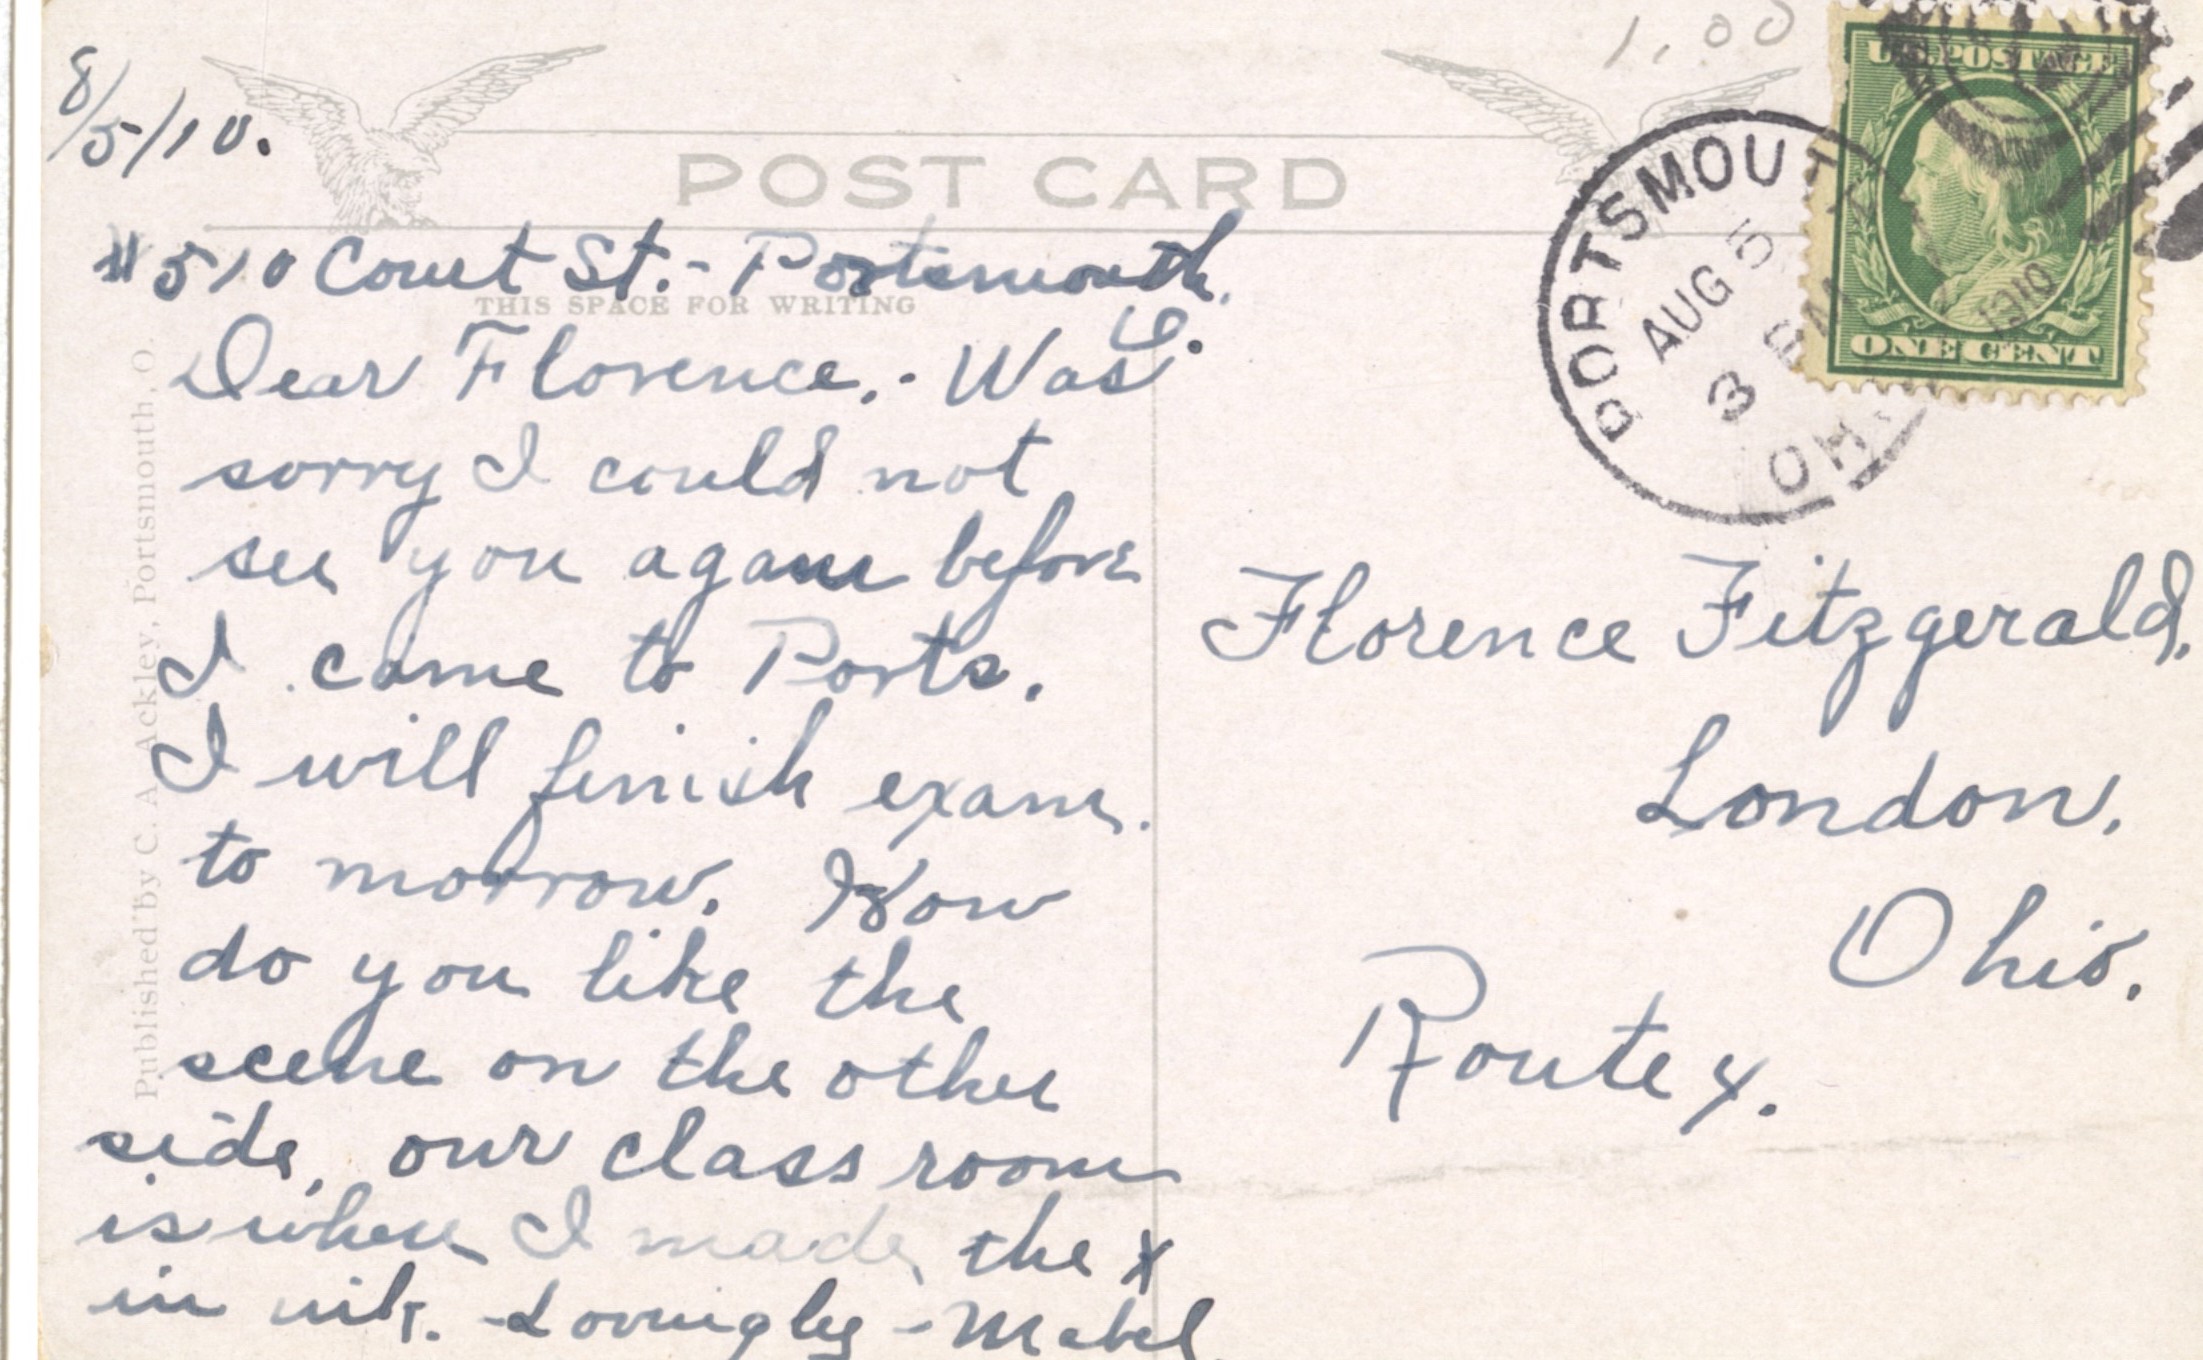 8/5/10.
1.00
U.S. POSTAGE
ONE CENT
PORTSMOUTH
AUG 5
3 PM
1910
OHIO
POST CARD
THIS SPACE FOR WRITING
Published by C. A. Ackley, Portsmouth, O.
#510 Court St. - Portsmouth,
O.
Dear Florence, - Was
sorry I could not
see you again before
I came to Ports.
I will finish exam.
to morrow. How
do you like the
scene on the other
side, our class room
is where I made the x
in ink. - Lovingly - Mabel
Florence Fitzgerald,
London,
Ohio.
Route 4.